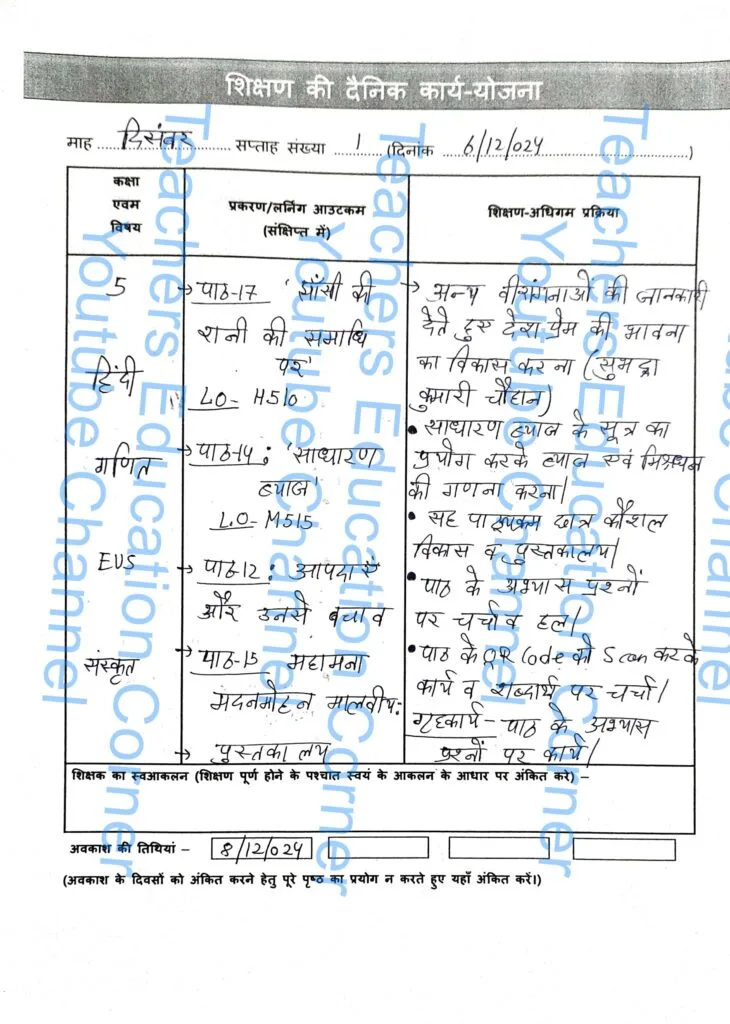 शिक्षण की दैनिक कार्य-योजना
माह दिसंबर सप्ताह संख्या 1 (दिनांक 6/12/024)
कक्षा
एवम
विषय
प्रकरण/लर्निग आउटकम
(संक्षिप्त में)
शिक्षण-अधिगम प्रक्रिया
5
हिंदी
→ पाठ-17 'झाँसी की
रानी की समाधि
पर'
LO- H510
→ अन्य वीरांगनाओं की जानकारी
देते हुए देश प्रेम की भावना
का विकास करना (सुभद्रा
कुमारी चौहान)
गणित
→ पाठ-14: 'साधारण
ब्याज'
LO- M515
• साधारण ब्याज के सूत्र का
प्रयोग करके ब्याज एवं मिश्रधन
की गणना करना।
• सह पाठ्यक्रम छात्र कौशल
विकास व पुस्तकालय।
EVS
→ पाठ-12: आपदाएँ
और उनसे बचाव
• पाठ के अभ्यास प्रश्नों
पर चर्चा व हल।
संस्कृत
→ पाठ-15 महामना
मदनमोहन मालवीय:
→ पुस्तकालय
• पाठ के QR Code को Scan करके
कार्य व शब्दार्थ पर चर्चा।
गृहकार्य- पाठ के अभ्यास
प्रश्नों पर कार्य।
शिक्षक का स्वआकलन (शिक्षण पूर्ण होने के पश्चात स्वयं के आकलन के आधार पर अंकित करे) –
अवकाश की तिथियां – 8/12/024
(अवकाश के दिवसों को अंकित करने हेतु पूरे पृष्ठ का प्रयोग न करते हुए यहाँ अंकित करें।)
Teachers Education Corner
Youtube Channel
Teachers Education Corner
Youtube Channel
Teachers Education Corner
Youtube Channel